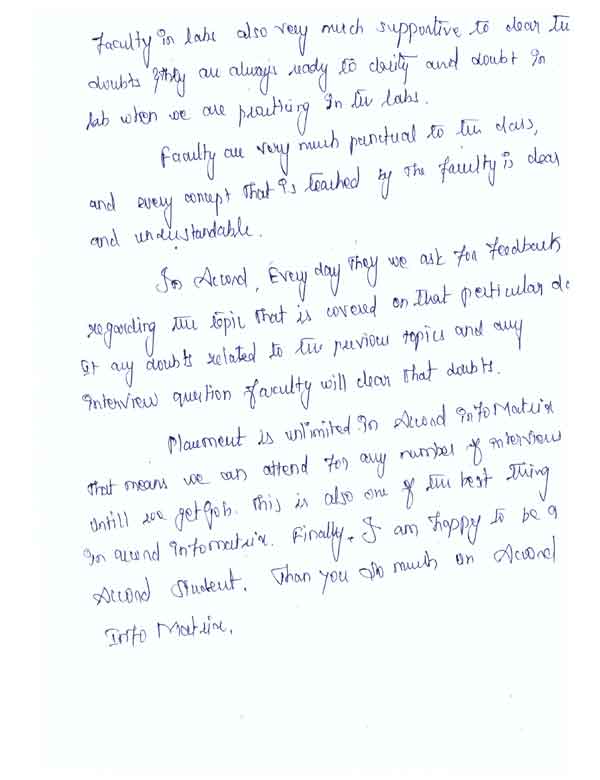 Faculty in labs also very much supportive to clear the
doubts they are always ready to clarity and doubt in
lab when we are practicing in the labs.
Faculty are very much punctual to the class,
and every concept that is teached by the faculty is clear
and understandable.
In Accord, Every day they we ask for feedback
regarding the topic that is covered on that particular da
If any doubts related to the previous topics and any
interview question faculty will clear that doubts.
Placement is unlimited in Accord InfoMatrix
that means we can attend for any number of interview
untill we get job. This is also one of the best thing
in accord infomatrix. Finally, I am happy to be a
Accord student. Than you so much on Accord
Info Matrix.